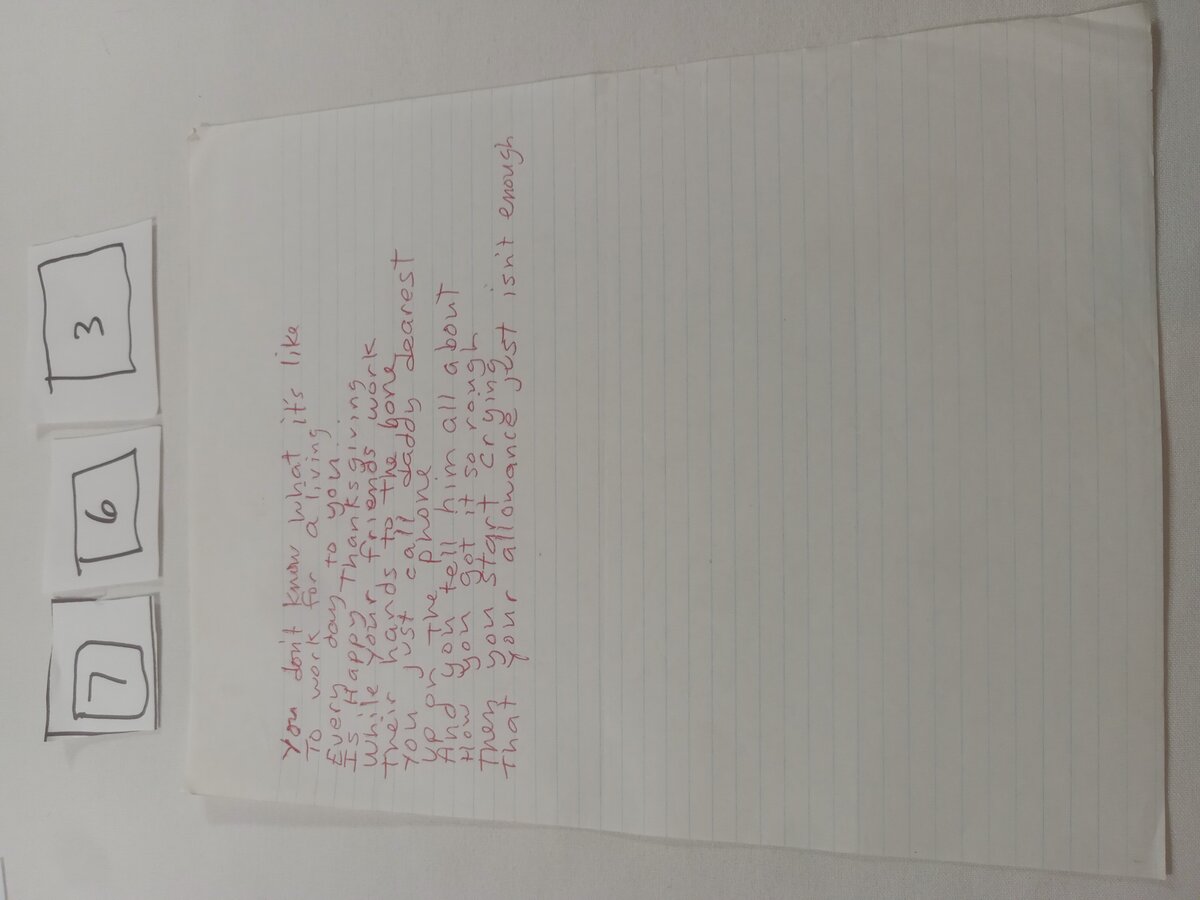 7 6 3
You don't know what it's like
To work for a living
Every day to you
Is Happy Thanksgiving
While your friends work
Their hands to the bone
You just call daddy dearest
up on the phone
And you tell him all about
How you got it so rough
Then you start crying
That your allowance just isn't enough